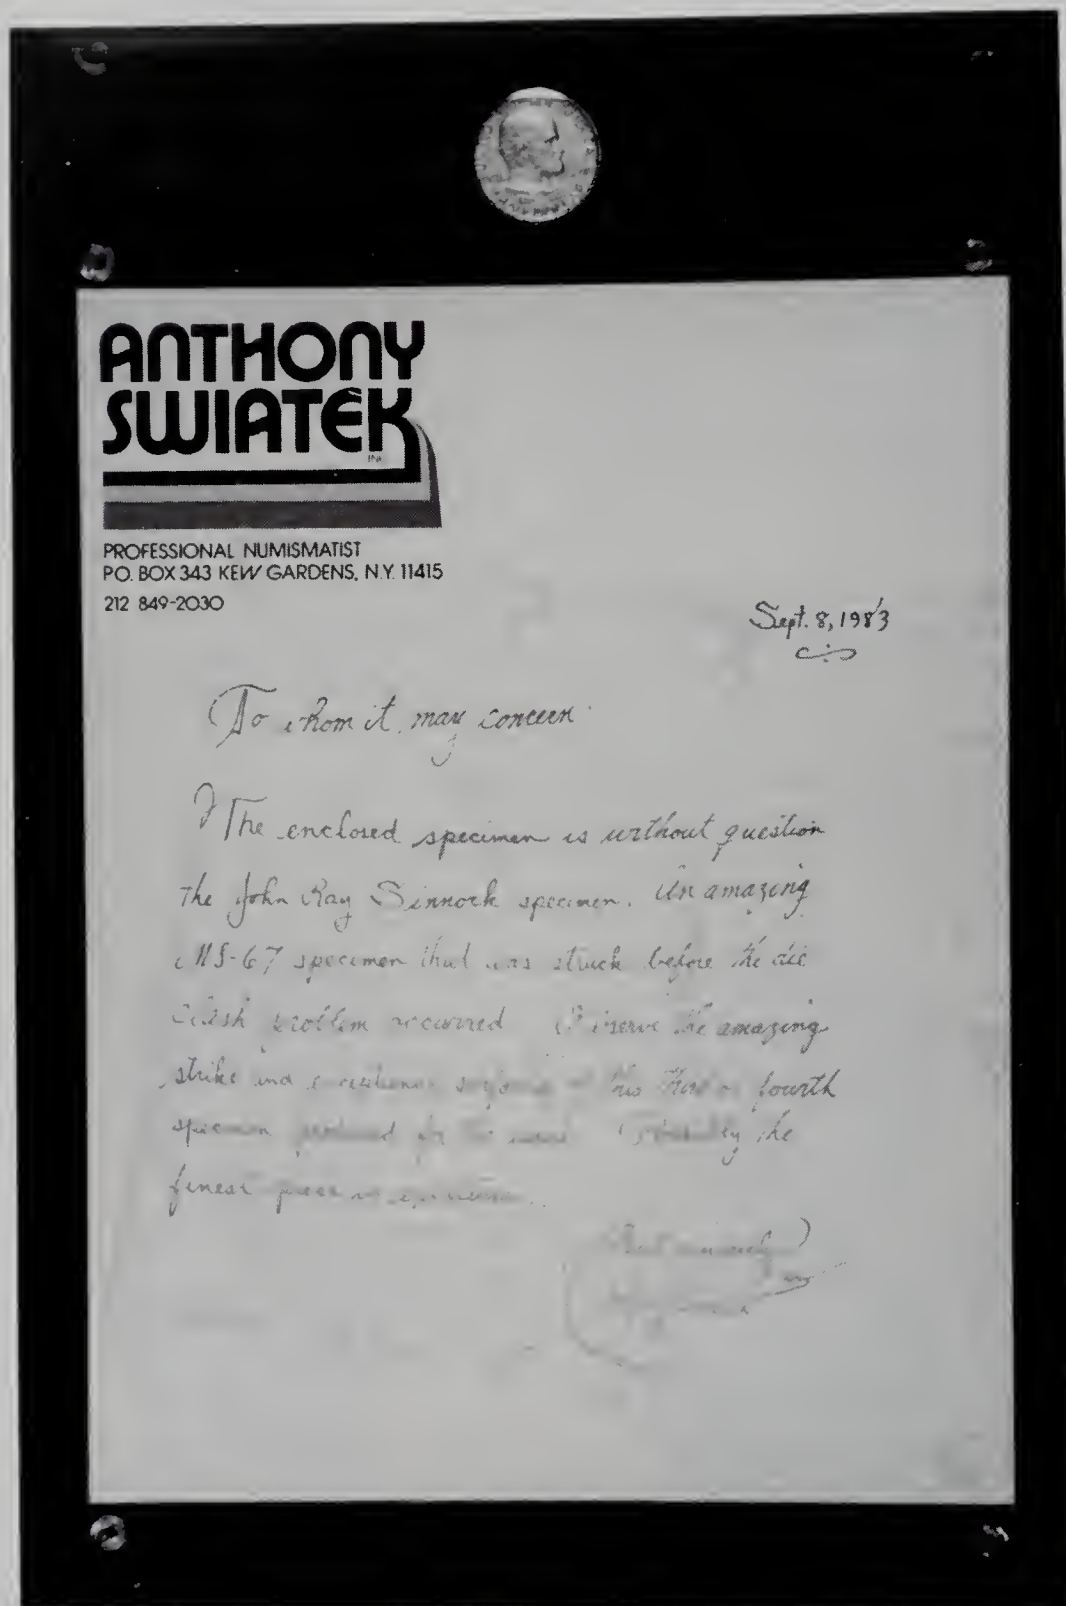 ANTHONY
SWIATEK
INC.
PROFESSIONAL NUMISMATIST
P.O. BOX 343 KEW GARDENS, N.Y. 11415
212 849-2030
Sept. 8, 1983
To whom it may concern
The enclosed specimen is without question
the John Ray Sinnock specimen. An amazing
MS-67 specimen that was struck before the die
clash problem occurred Observe the amazing
strike and surfaces this third or fourth
specimen produced for the the
finest piece in